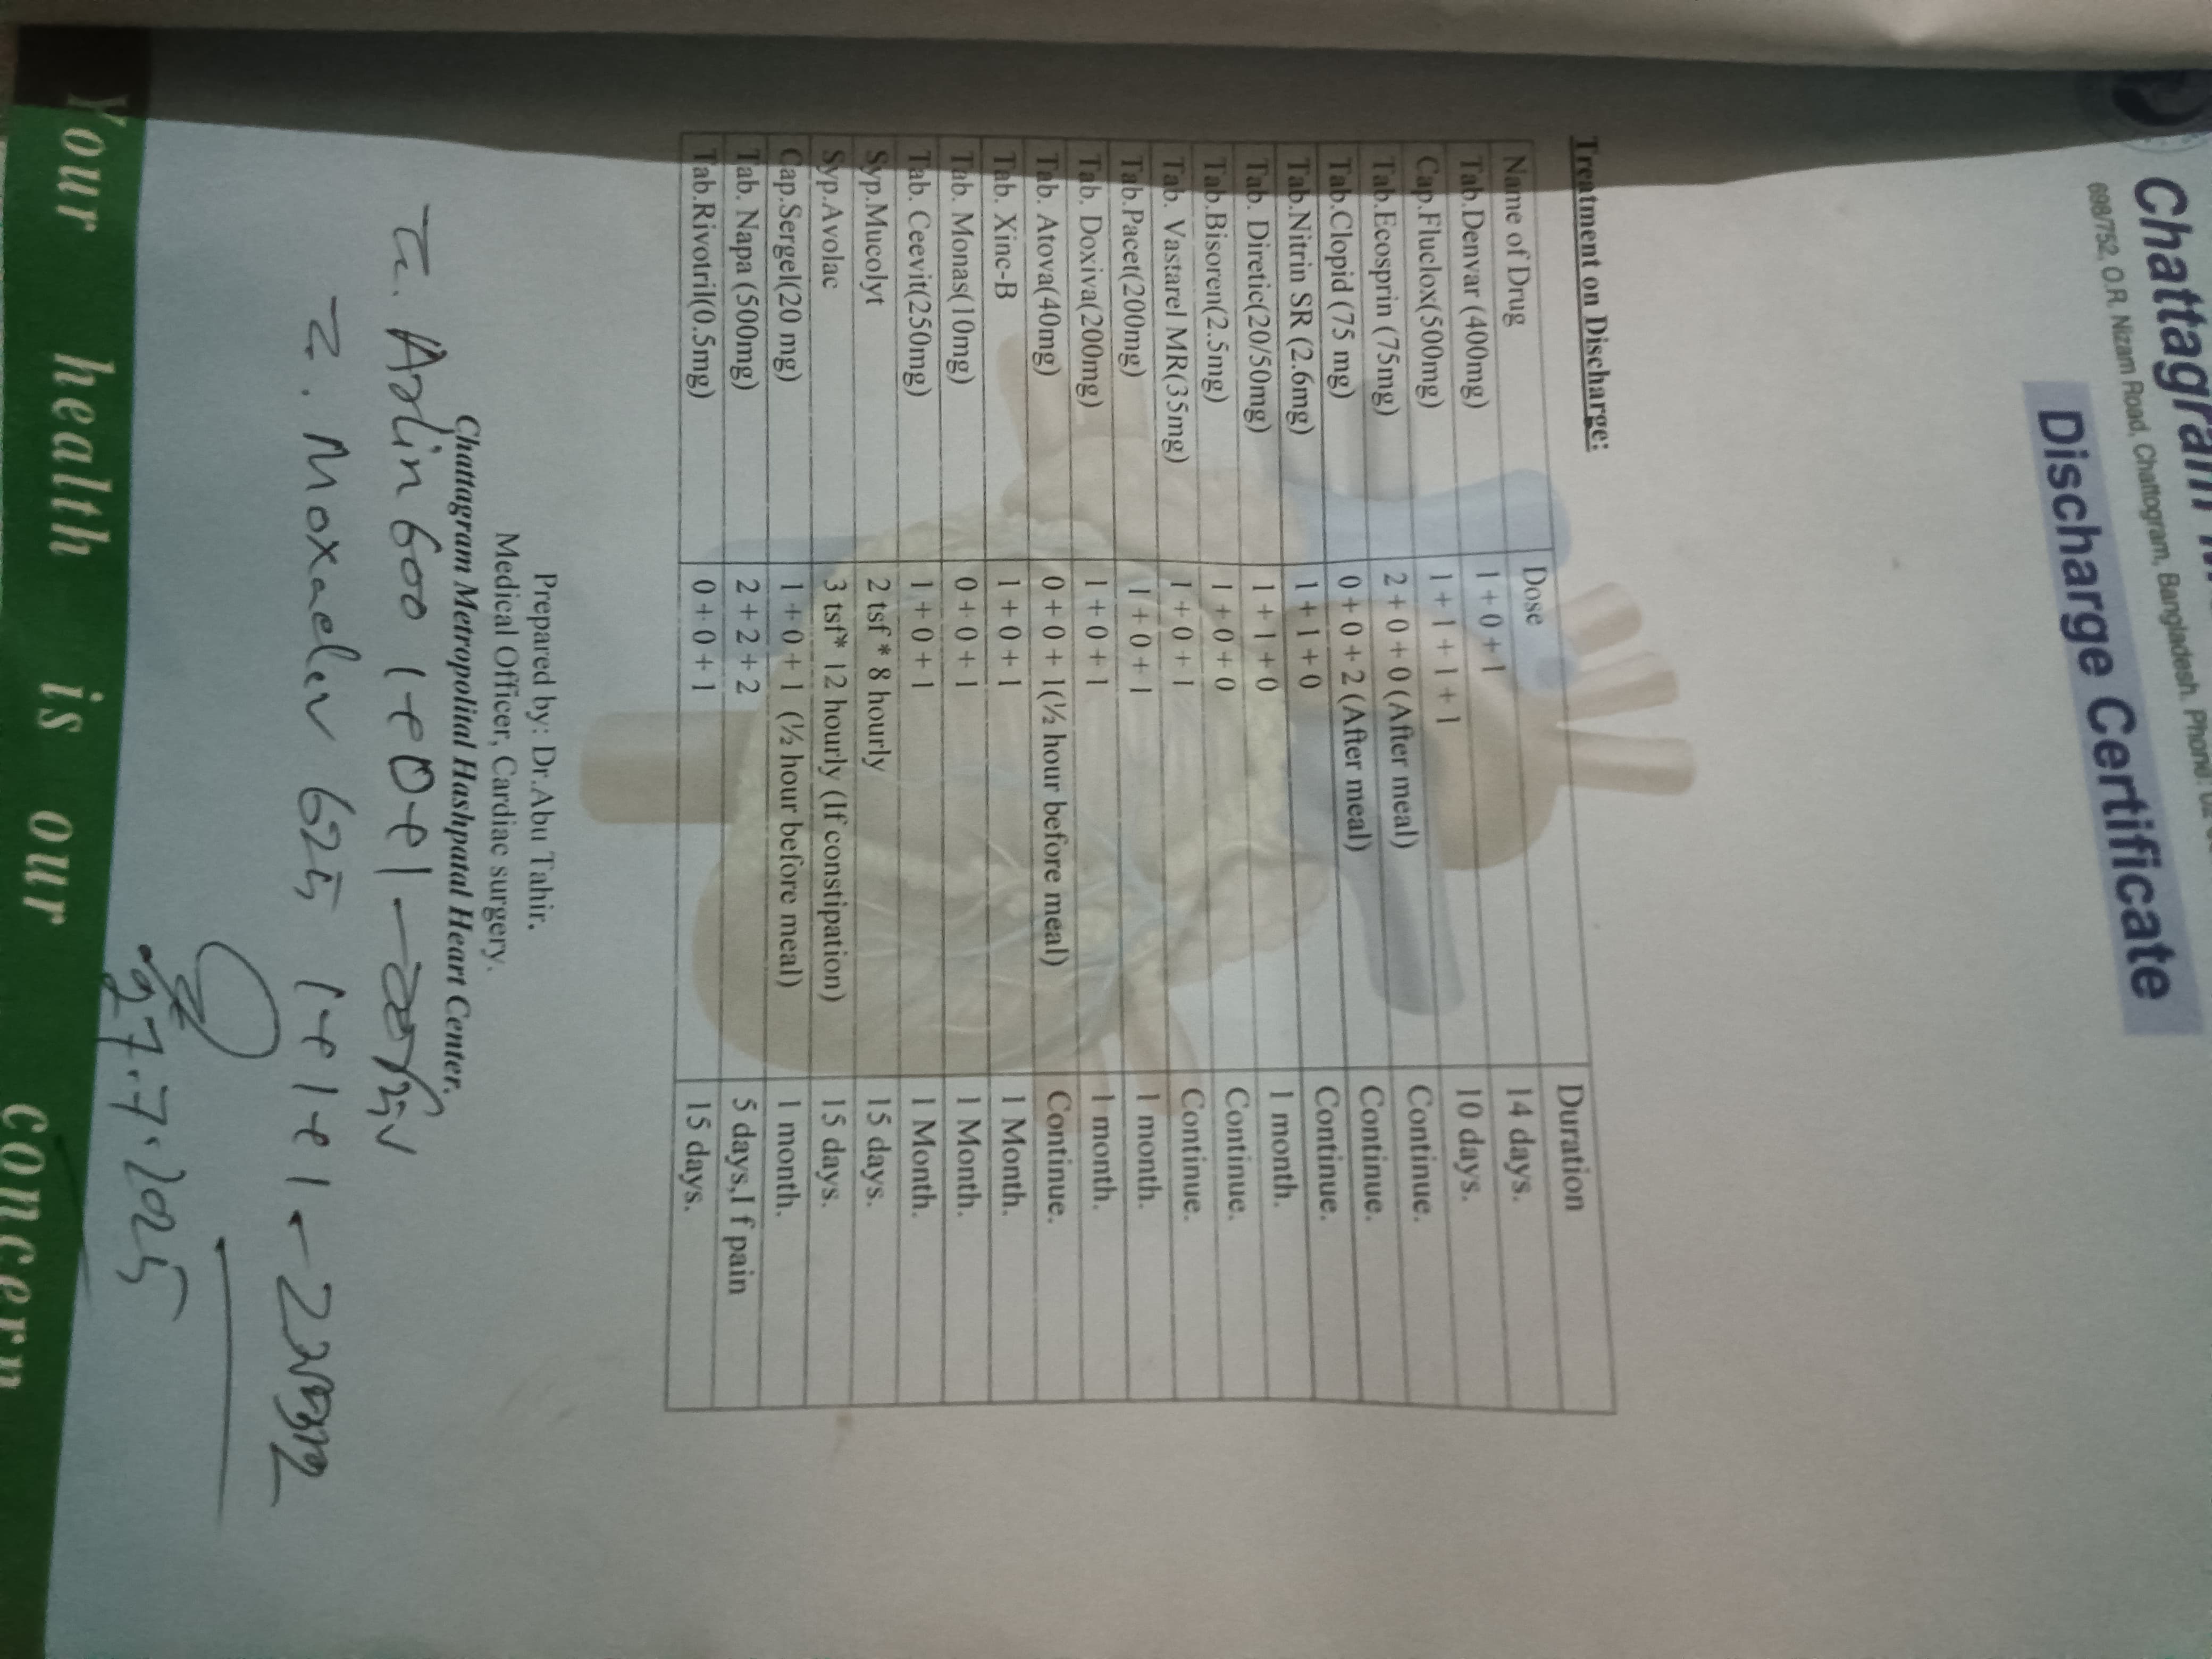 Chattagram M
698/752, O.R. Nizam Road, Chattogram, Bangladesh. Phone: 02
Discharge Certificate
Treatment on Discharge:
Name of Drug Dose Duration
Tab.Denvar (400mg) 1 + 0 + 1 14 days.
Cap.Fluclox(500mg) 1 + 1 + 1 + 1 10 days.
Tab.Ecosprin (75mg) 2 + 0 + 0 (After meal) Continue.
Tab.Clopid (75 mg) 0 + 0 + 2 (After meal) Continue.
Tab.Nitrin SR (2.6mg) 1 + 1 + 0 Continue.
Tab. Diretic(20/50mg) 1 + 1 + 0 1 month.
Tab.Bisoren(2.5mg) 1 + 0 + 0 Continue.
Tab. Vastarel MR(35mg) 1 + 0 + 1 Continue.
Tab.Pacet(200mg) 1 + 0 + 1 1 month.
Tab. Doxiva(200mg) 1 + 0 + 1 1 month.
Tab. Atova(40mg) 0 + 0 + 1(½ hour before meal) Continue.
Tab. Xinc-B 1 + 0 + 1 1 Month.
Tab. Monas(10mg) 0 + 0 + 1 1 Month.
Tab. Ceevit(250mg) 1 + 0 + 1 1 Month.
Syp.Mucolyt 2 tsf * 8 hourly 15 days.
Syp.Avolac 3 tsf* 12 hourly (If constipation) 15 days.
Cap.Sergel(20 mg) 1 + 0 + 1 (½ hour before meal) 1 month.
Tab. Napa (500mg) 2 + 2 + 2 5 days,I f pain
Tab.Rivotril(0.5mg) 0 + 0 + 1 15 days.
Prepared by: Dr.Abu Tahir.
Medical Officer, Cardiac surgery.
Chattagram Metropolital Hashpatal Heart Center.
600 1+0+1 —
Moxaclav 625 1+1+1 —
27.7.2025
Your health is our concern